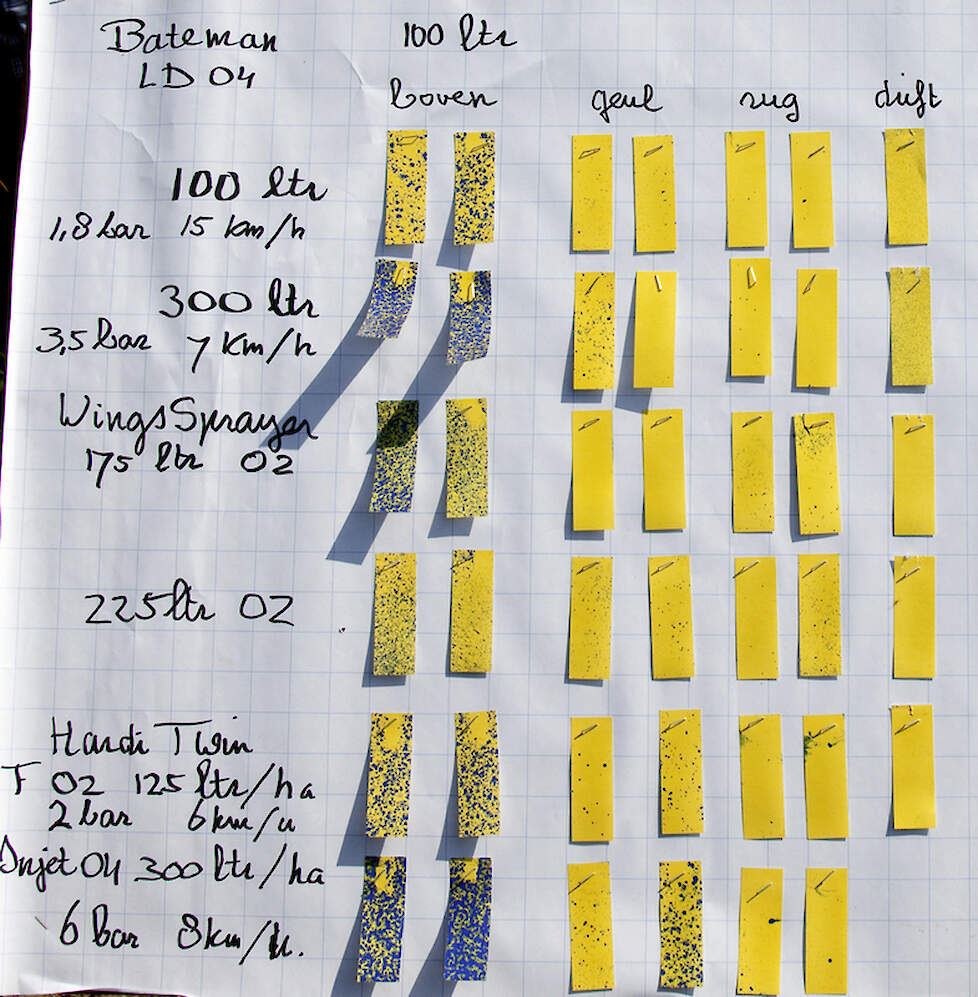 Bateman 100 ltr
LD 04
boven geul rug drift
100 ltr
1,8 bar 15 km/h
300 ltr
3,5 bar 7 Km/h
WingsSprayer
175 ltr 02
225 ltr 02
Hardi Twin
F 02 125 ltr/ha
2 bar 6 km/u
Injet 04 300 ltr/ha
6 bar 8 km/u.